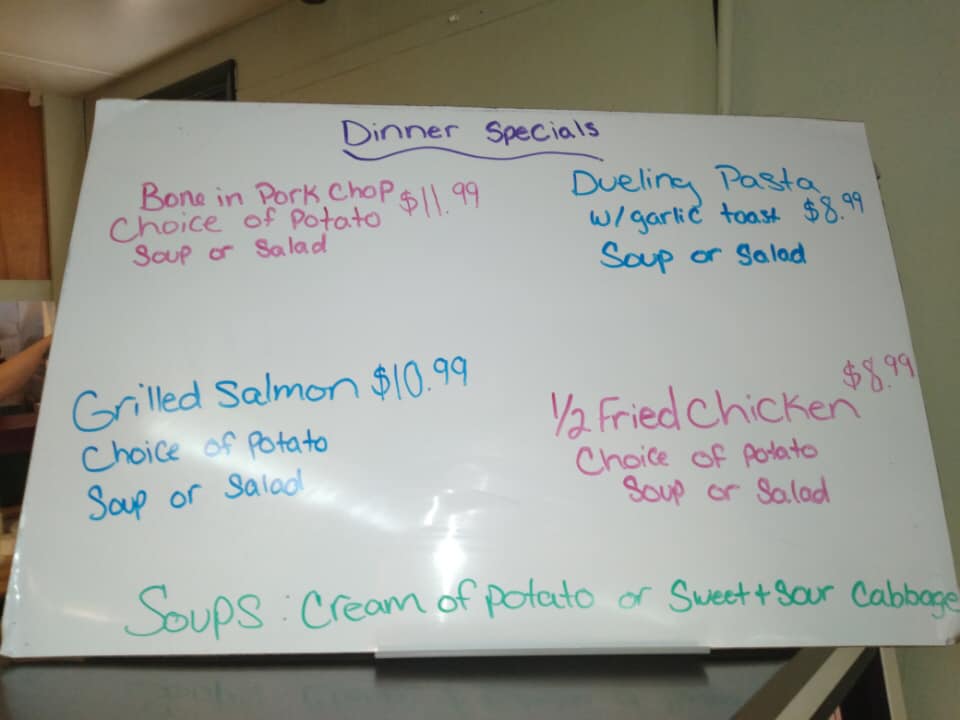 Dinner Specials
Bone in Pork Chop $11.99
Choice of Potato
Soup or Salad
Dueling Pasta
w/garlic toast $8.99
Soup or Salad
Grilled Salmon $10.99
Choice of Potato
Soup or Salad
1/2 Fried Chicken $8.99
Choice of Potato
Soup or Salad
Soups: Cream of potato or Sweet + Sour Cabbage